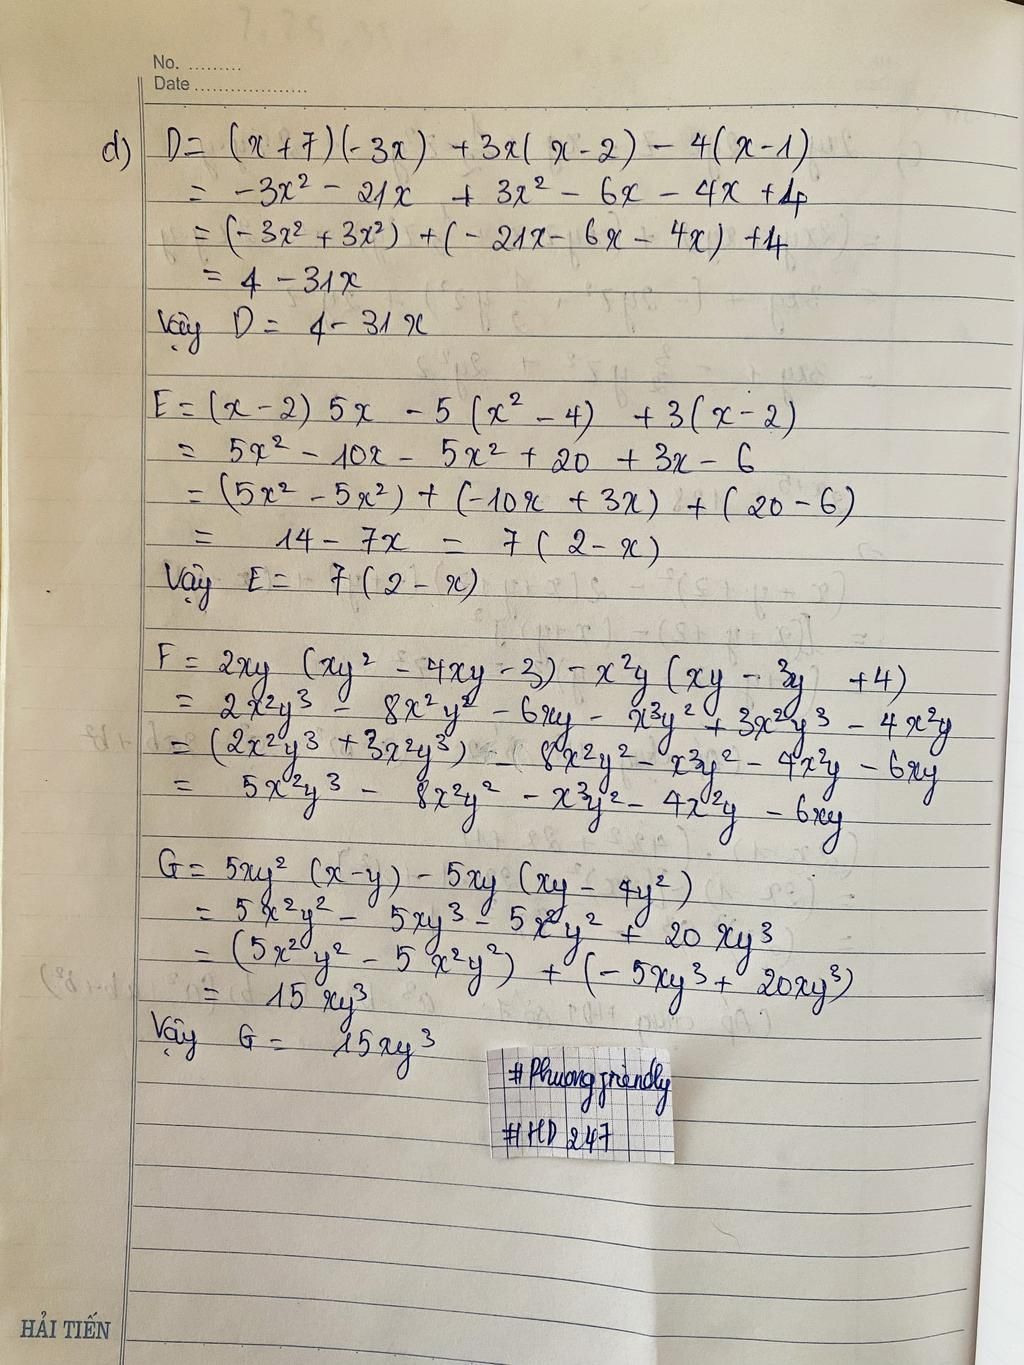 No. .........
Date ...................
d) D = (x + 7)(-3x) + 3x(x - 2) - 4(x - 1)
= -3x² - 21x + 3x² - 6x - 4x + 4
= (-3x² + 3x²) + (-21x - 6x - 4x) + 4
= 4 - 31x
Vậy D = 4 - 31x
E = (x - 2) 5x - 5(x² - 4) + 3(x - 2)
= 5x² - 10x - 5x² + 20 + 3x - 6
= (5x² - 5x²) + (-10x + 3x) + (20 - 6)
= 14 - 7x = 7(2 - x)
Vậy E = 7(2 - x)
F = 2xy (xy² - 4xy - 3) - x²y (xy - 3y + 4)
= 2x²y³ - 8x²y² - 6xy - x³y² + 3x²y³ - 4x²y
= (2x²y³ + 3x²y³) - 8x²y² - x³y² - 4x²y - 6xy
= 5x²y³ - 8x²y² - x³y² - 4x²y - 6xy
G = 5xy² (x - y) - 5xy (xy - 4y²)
= 5x²y² - 5xy³ - 5x²y² + 20xy³
= (5x²y² - 5x²y²) + (-5xy³ + 20xy³)
= 15xy³
Vậy G = 15xy³
#Phuongfrêndly
#HD 247
HẢI TIẾN